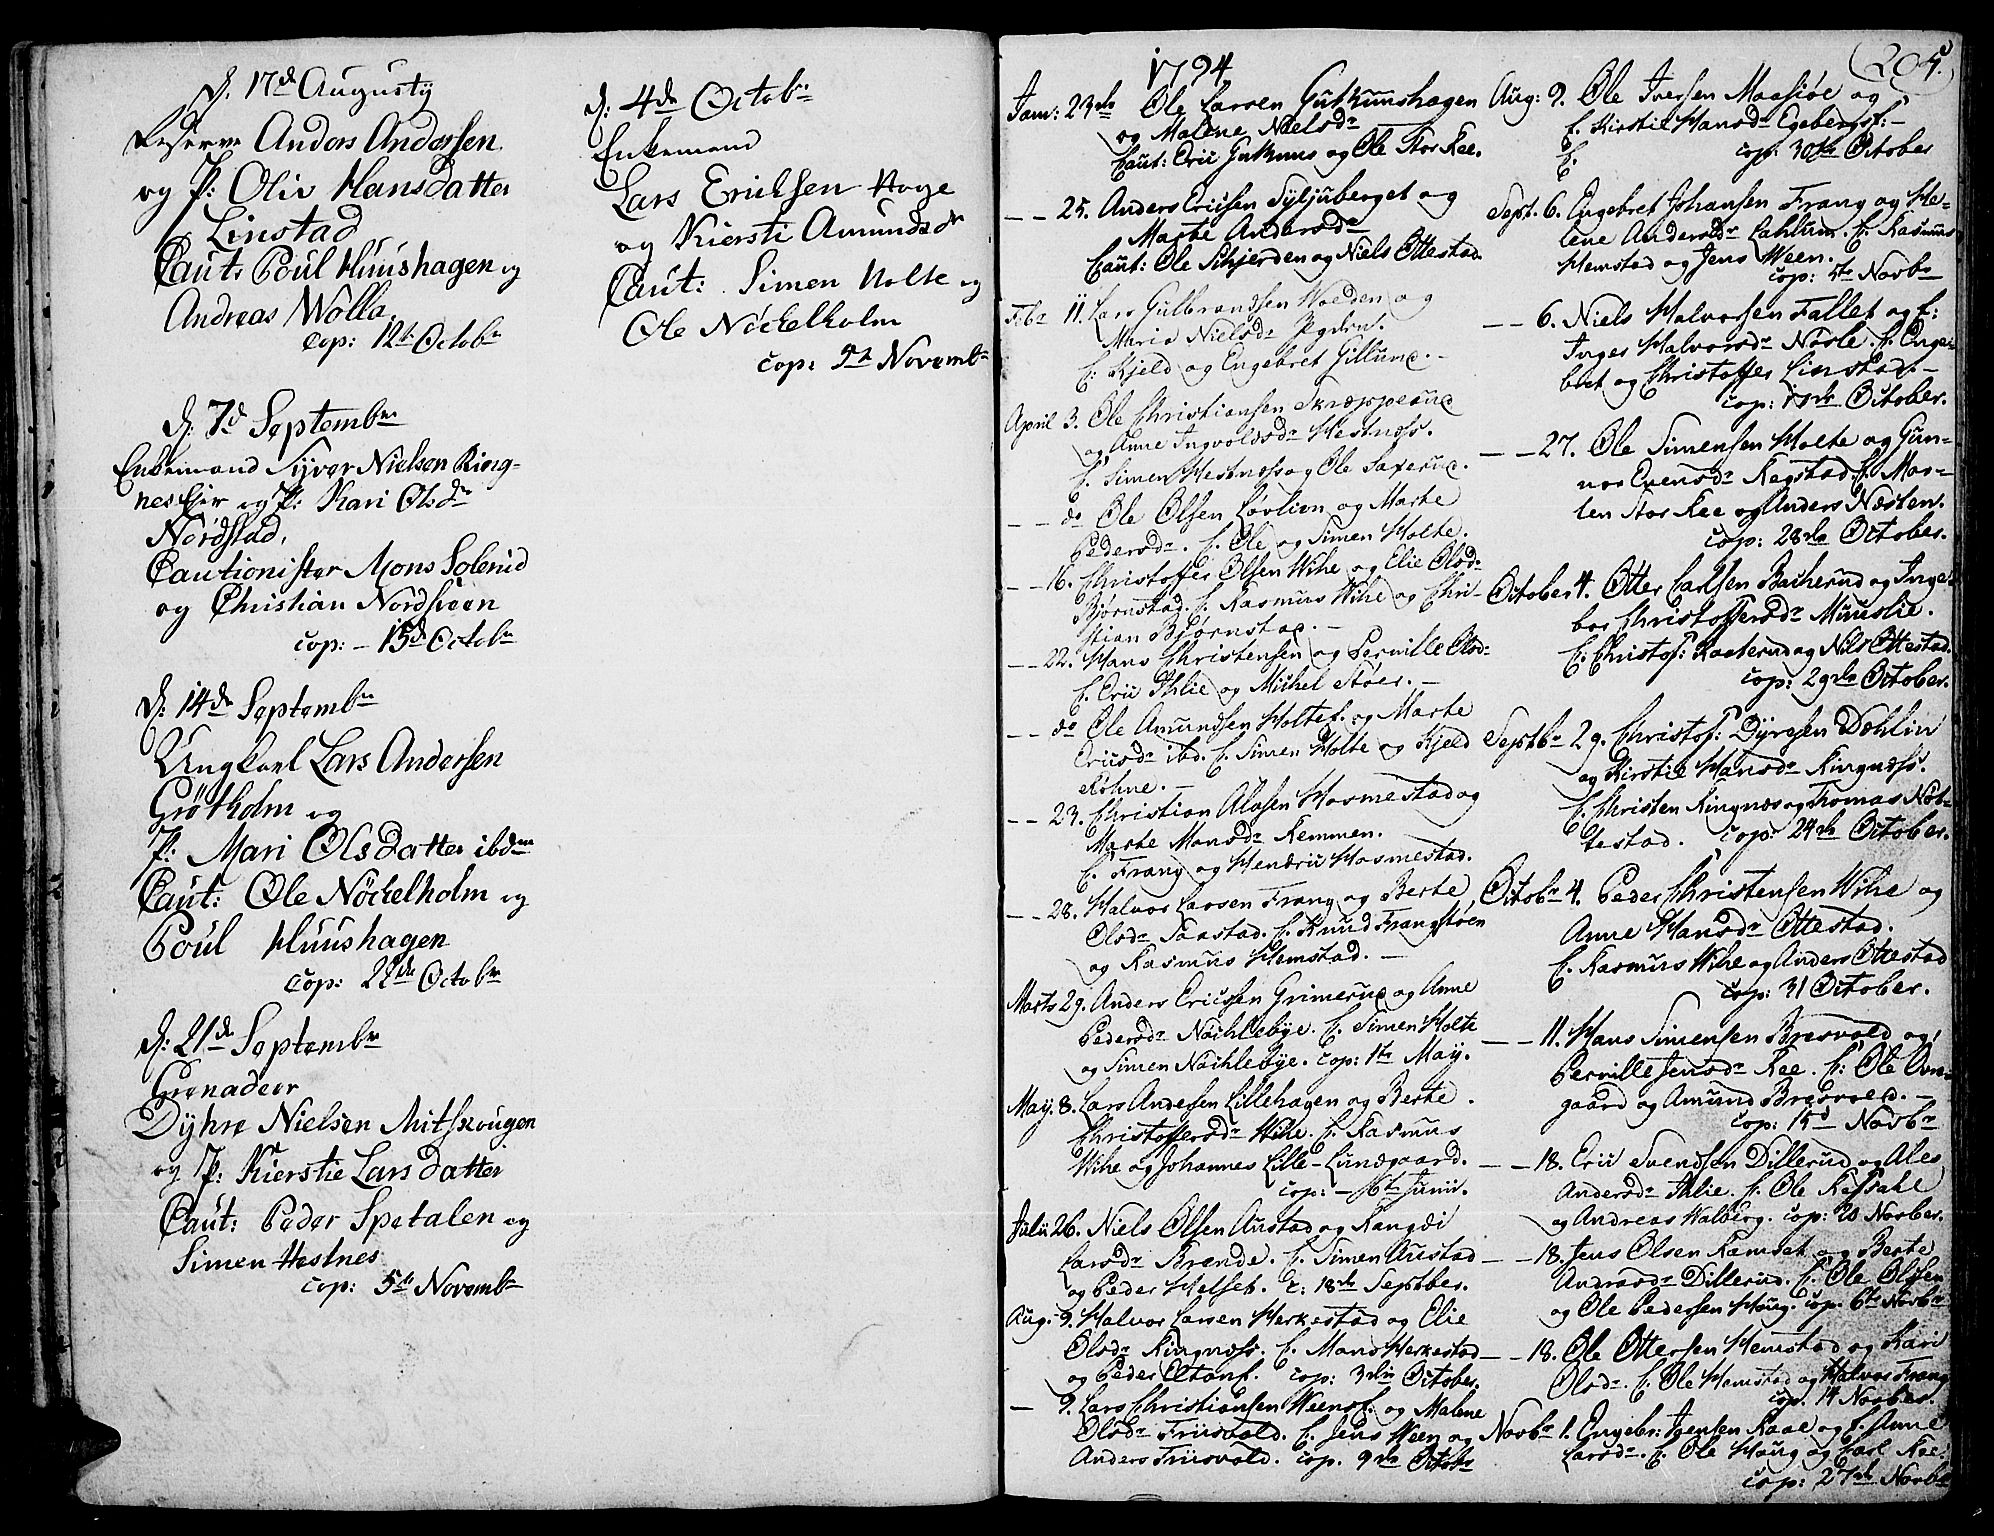 d. 17de Augusty
Reserve Anders Andersen
og P: Oliv Hansdatter
Linstad
Caut: Poul Huushagen og
Andreas Wolla.
cop: 12te Octobr
d: 7de Septembr
Enkemand Syver Nielsen Ring-
nes Eier og P: Kari Olsdr
Nordstad,
Cautionister Mons Solerud
og Christian Nordsveen
cop: - 15de Octobr
d: 14de Septembr
Ungkarl Lars Andersen
Grøtholm og
P: Mari Olsdatter ibdm
Caut: Ole Nöckelholm og
Poul Huushagen
cop: 22de Octobr
d: 21de Septembr
Grenadeer
Dyhre Nielsen Mitskougen
og P: Kierstie Larsdatter
Caut: Peder Spetalen og
Simen Hestnes
cop: 5te Novembr
d: 4de Octobr
Enkemand
Lars Ericksen Hoye
og Kiersti Amundsdr
Caut: Simen Holte og
Ole Nöckelholm
cop: 5te Novembr
205.
1794
Jan: 23de Ole Larsen Gutkuushagen
og Malene Nielsdr
Caut: Eric Gutkuus og Ole Stor Ree.
- - 25. Anders Ericsen Syljuberget og
Marte Andersdr
Caut: Ole Schjerden og Niels Ottestad.
Febr 11. Lars Gulbrandsen Woeden og
Marie Nielsdr Jegdrn.
C: Kjeld og Engebret Gillund. -
April 3. Ole Christiansen Skræpperud
og Anne Ingvoldsdr Hestnæss.
C. Simen Hestnæss og Ole Saxerud.
- - do Ole Olsen Løvlien og Marte
Pedersdr. C. Ole og Simen Holte.
- - 16. Christoffer Olsen Wihe og Elie Olsd:
Bjørnstad. C. Rasmus Wihe og Chri-
stian Bjørnstad. -
- - 22. Hans Christensen og Pernille Olsd:
C. Eric Ihlie og Michel Støer. -
- - do Ole Amundsen Holtef. og Marte
Ericsdr ibd. C. Simen Holte og Kjeld
Rohne. -
- - 23. Christian Alfsen Hosmestad og
Marte Monsdr Remmen.
C. Frang og Hendric Hosmestad.
- - 28. Halvor Larsen Frang og Berte
Olsdr Saastad. C. Knud Frangstøen
og Rasmus Hemstad. -
Marts 29. Anders Ericsen Grimerud og Anne
Pedersdr Nøchlebye. C. Simen Holte
og Simen Nøchlebye. cop: 1te May.
May. 8. Lars Andersen Lillehagen og Berte
Christoffersdr Wihe. C. Rasmus
Wihe og Johannes Lille-Lundgaard.
cop: - 16te Junii.
Julii 26. Niels Olsen Austad og Rangdi
Larsdr Brende. C. Simen Austad
og Peder Helset. c: 18de Septber.
Aug. 9. Halvor Larsen Herkestad og Elie
Olsdr Ringnæss. C. Mons Herkestad
og Peder Etanf. cop: 3die October.
- 9. Lars Christiansen Weensf. og Malene
Olsdr Friisvold. C. Jens Ween og
Anders Friisvold. cop. 9de Octobr
Aug: 9. Ole Iversen Maasiøe og
C. Kirstie Hansdr Egebergs: -
C. cop: 30te October
Sept. 6. Engebret Johansen Frang og He-
lene Andersdr Lahlum. C. Rasmus
Hemstad og Jens Ween.
cop: 4te Novbr
- - 6. Niels Halvorsen Fallet og C:
Inger Halvorsdr Norle. C. Enge-
bret og Christoffer Linstad. -
cop: 17de October.
- - 27. Ole Simensen Holte og Gun-
nor Evensdr Regstad. C. Mor-
ten Stor Ree og Anders Næsten.
cop: 28de October.
October 4. Otter Carlsen Bacherud og Inge-
bor Christoffersdr Muuslie.
C. Christof: Raaterud og Nils Ottestad.
cop: 29de October.
Septbr 29. Christof: Dyresen Dohlin
og Kirstie Hansdr Ringnæss.
C. Christen Ringnæs og Thomas Not-
testad. cop: 24de October.
Octobr 4. Peder Christensen Wihe og
Anne Hansdr Ottestad.
C. Rasmus Wihe og Anders Ottestad
cop: 31 October.
- - 11. Hans Simensen Bresvold og
Pernille Jensdr Ree. C: Ole Ovn-
gaard og Amund Bresvold. -
cop: 15d Novbr
- - 18. Eric Svendsen Dillerud og Ales
Andersdr Ihlie. C. Ole Refsahl
og Andreas Walberg. cop: 20 Novber.
- - 18. Jens Olsen Ramset og Berte
Andrasdr Dillerud. C. Ole Olsen
og Ole Pedersen Houg. cop. 6te Novbr
- - 18. Ole Ottersen Hemstad og Kari
Olsdr. C. Ole Hemstad og Halvor Frang
cop. 14 Novber.
Novbr 1. Engebr: Jensen Raae og C. Anne
Larsdr. C. Ole Houg og Carl Ree.
cop: 27de Novbr